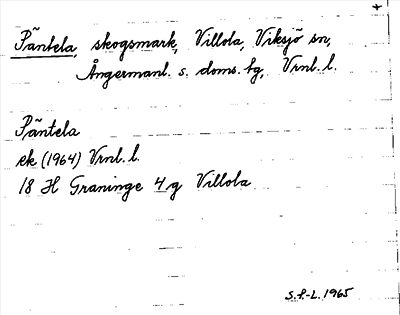 Päntela, skogsmark, Villola, Viksjö sn,
Ångermanl. s. doms. bg, Vrnl. l.
Päntela
ek (1964) Vrnl. l.
18 H Graninge 4 g Villola
S.F-L. 1965